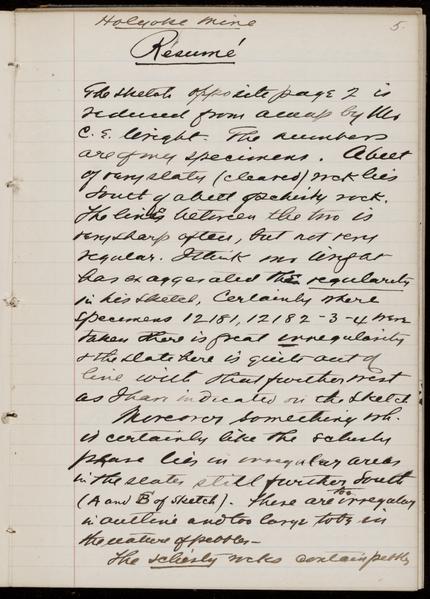 Holyoke Mine
5.
Résumé
The sketch opposite page 2 is
reduced from a map by Mr
C. E. Wright. The numbers
are of my specimens. A belt
of very slaty (cleaved) rock lies
South of a belt of schisty rock.
The line between the two is
very sharp often, but not very
regular. I think Mr Wright
has exaggerated the regularity
in his sketch, Certainly where
specimens 12181, 12182-3-4 were
taken there is great irregularity
& the slate here is quite out of
line with that further west
as I have indicated on the sketch
Moreover something wh.
is certainly like the schisty
phase lies in irregular areas
in the slates still further South
(A and B of sketch). These are too irregular
in outline and too large to be in
the nature of pebbles-
The schisty rocks contain pebbles